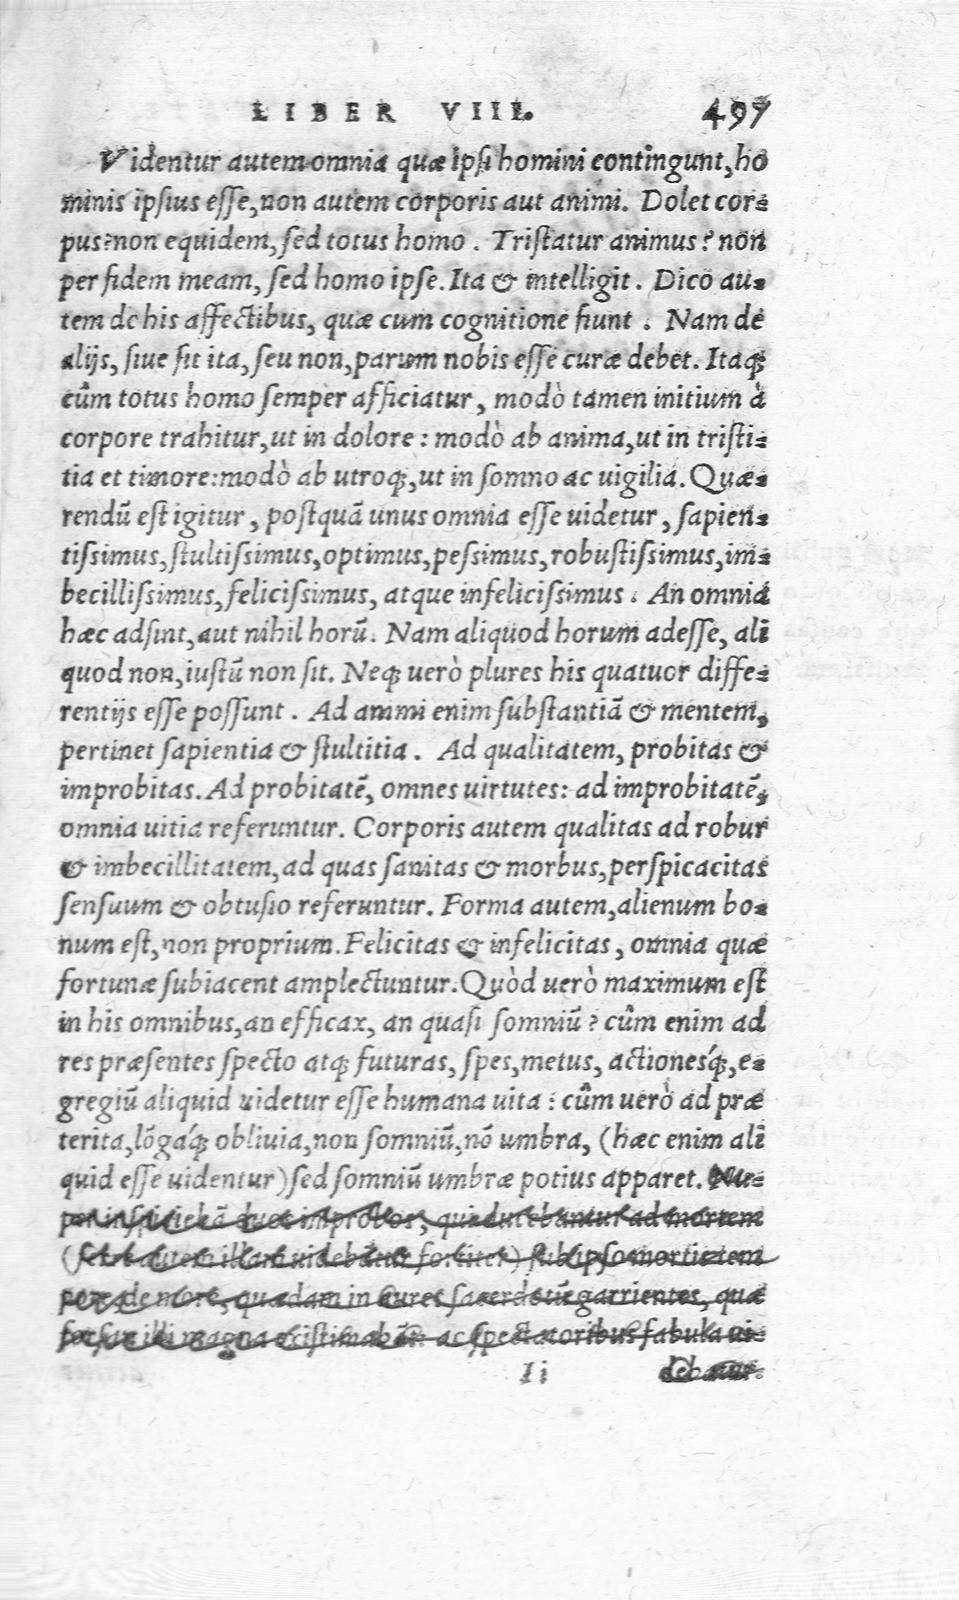 LIBER VIII. 497
Videntur autem omnia quæ ipsi homini contingunt, ho
minis ipsius esse, non autem corporis aut animi. Dolet cor-
pus? non equidem, sed totus homo. Tristatur animus? non
per fidem meam, sed homo ipse. Ita & intelligit. Dico au-
tem de his affectibus, quæ cum cognitione fiunt. Nam de
alijs, siue sit ita, seu non, parum nobis esse curæ debet. Itaq;
cûm totus homo semper afficiatur, modò tamen initium à
corpore trahitur, ut in dolore: modò ab anima, ut in tristi-
tia et timore: modò ab utroq;, ut in somno ac uigilia. Quæ-
rendū est igitur, postquā unus omnia esse uidetur, sapien-
tissimus, stultissimus, optimus, pessimus, robustissimus, im-
becillissimus, felicissimus, atque infelicissimus. An omnia
hæc adsint, aut nihil horū. Nam aliquod horum adesse, ali
quod non, iustū non sit. Neq; uerò plures his quatuor diffe-
rentijs esse possunt. Ad animi enim substantiā & mentem,
pertinet sapientia & stultitia. Ad qualitatem, probitas &
improbitas. Ad probitatē, omnes uirtutes: ad improbitatē,
omnia uitia referuntur. Corporis autem qualitas ad robur
& imbecillitatem, ad quas sanitas & morbus, perspicacitas
sensuum & obtusio referuntur. Forma autem, alienum bo-
num est, non proprium. Felicitas & infelicitas, omnia quæ
fortunæ subiacent amplectuntur. Quòd uerò maximum est
in his omnibus, an efficax, an quasi somniū? cûm enim ad
res præsentes specto atq; futuras, spes, metus, actionesq́;, e-
gregiū aliquid uidetur esse humana uita: cûm uerò ad præ
terita, lōgaq́; obliuia, non somniū, nō umbra, (hæc enim ali
quid esse uidentur) sed somniū umbræ potius apparet. Nu-
per duos improbos, qui ducebantur ad mortem
autem illam uidebatur fortiter) sub ipso mortis
de more, quædam in aures garrientes, quæ
forsan illi magna existimabāt: ac spectatoribus fabula ui-
Ii debatur.